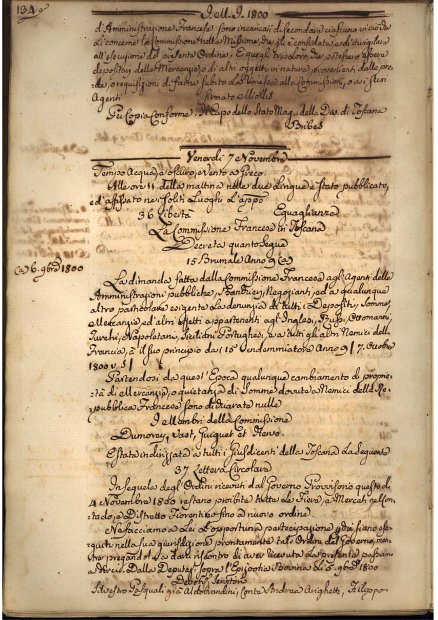 134
J.M.J. 1800
d'Amministrazione Francese sono incaricati di secondare ciascuno in ciò che
lo concerne la Commissione nella Missione, che gli è confidata e di invigilare
all'esecuzione del presente Ordine. E quegli tra loro, che potessero essere
depositarj delle Mercanzie, o di altri oggetti in natura provenienti dalle pre-
de, o requisizioni di farne subito la Rimessa alla Commissione, o a i suoi
Agenti firmato Miollis
Per Copia Conforme Il Capo dello Stato Mag.e della Div. di Toscana
Bribes
Venerdì 7 Novembre
Tempo Acqua, e oscuro, e vento a Greco.
Alle ore 11 della mattina nelle due Lingue è stato pubblicato,
ed affisso ne' Soliti Luoghi L'appo
36 Libertà Eguaglianza
La Commissione Francese in Toscana
Decreta quanto Segue
15 Brumale Anno 9 (a)
(a) 6. 9bre 1800
La dimanda fatta dalla Commissione Francese agli Agenti delle
Amministrazioni pubbliche, Banchieri, Negozianti, ed a qualunque
altro particolare esigente la denunzia di tutti i Depositi, Somme,
e Mercanzie ed altri effetti appartenenti agli Inglesi, Russi, Ottomanni,
Turchi, Napoletani, Siciliani, Portughesi, e a tutti gli altri Nemici della
Francia, è il suo principio da i 15 Vendemmiatore Anno 9 / 7. Ottobre
1800 v. s.
Partendosi da quest'Epoca qualunque cambiamento di proprie-
tà di Mercanzie, o quietanza di Somme dovute a Nemici della Re-
pubblica Francese sono dichiarate nulle
I Membri della Commissione
Dumorey, Vast, Juquet et
È stata indirizzata a tutti i Giusdicenti della Toscana La Seguente
37 Lettera Circolare
In sequela degli Ordini ricevuti dal Governo Provvisorio questo dì
4 Novembre 1800 restano proibite tutte le Fiere, e Mercati nel Con-
tado, e Distretto Fiorentino fino a nuovo ordine.
Ne facciamo a Lei l'opportuna partecipazione perché siano ese-
guiti nella sua giurisdizione prontamente tali Ordini del Governo, men-
tre pregandola a darci riscontro di aver ricevuta la presente passiamo
a dirci. Dalla Deputaz.e sopra l'Epizootia Bovina dì 5. 9bre 1800
Devot.i Senatore
Silvestro Pasquali già Aldobrandini, Conte Andrea Arrighetti, Filippo